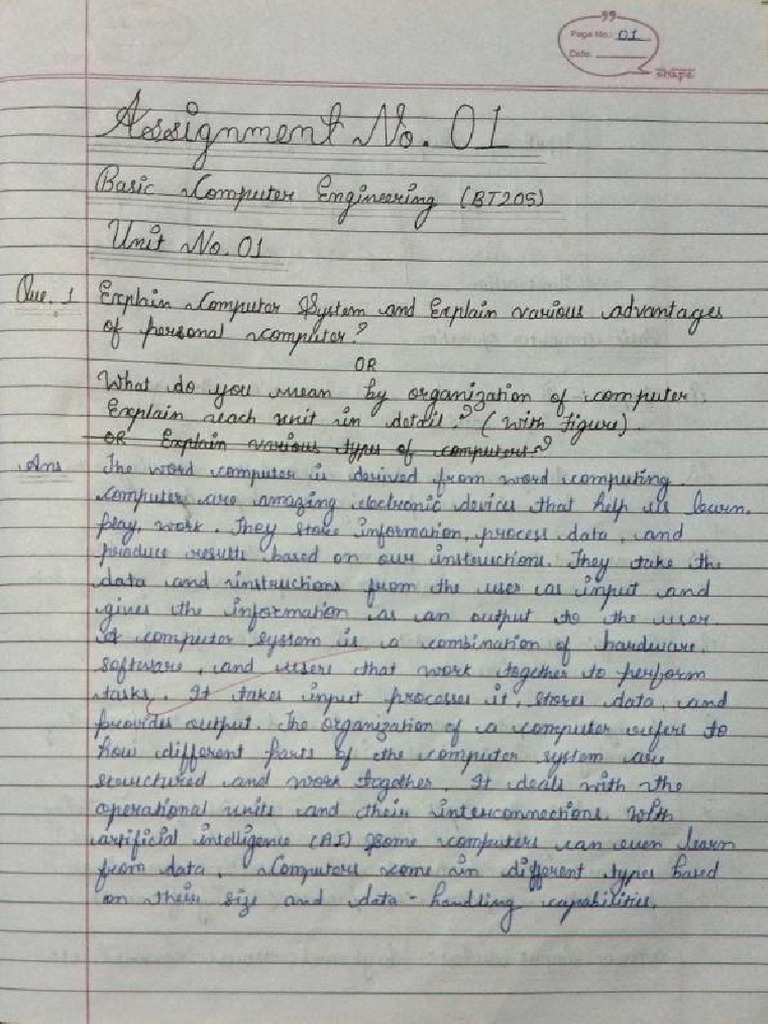 Page No.: 01
Date:
Assignment No. 01
Basic Computer Engineering (BT205)
Unit No. 01
Que. 1 Explain Computer System and Explain various advantages
of personal computer?
OR
What do you mean by organization of computer
Explain each unit in detail? (with figure)
OR Explain various types of computers?
Ans The word computer is derived from word computing.
computer are amazing electronic devices that help us learn,
play, work. They store information, process data, and
produce results based on our instructions. They take the
data and instructions from the user as input and
gives the information as an output to the user.
A computer system is a combination of hardware,
software, and users that work together to perform
tasks. It takes input processes it, stores data, and
provides output. The organization of a computer refers to
how different parts of the computer system are
structured and work together. It deals with the
operational units and their interconnections. With
artificial intelligence (AI) some computers can even learn
from data. Computers come in different types based
on their size and data-handling capabilities.